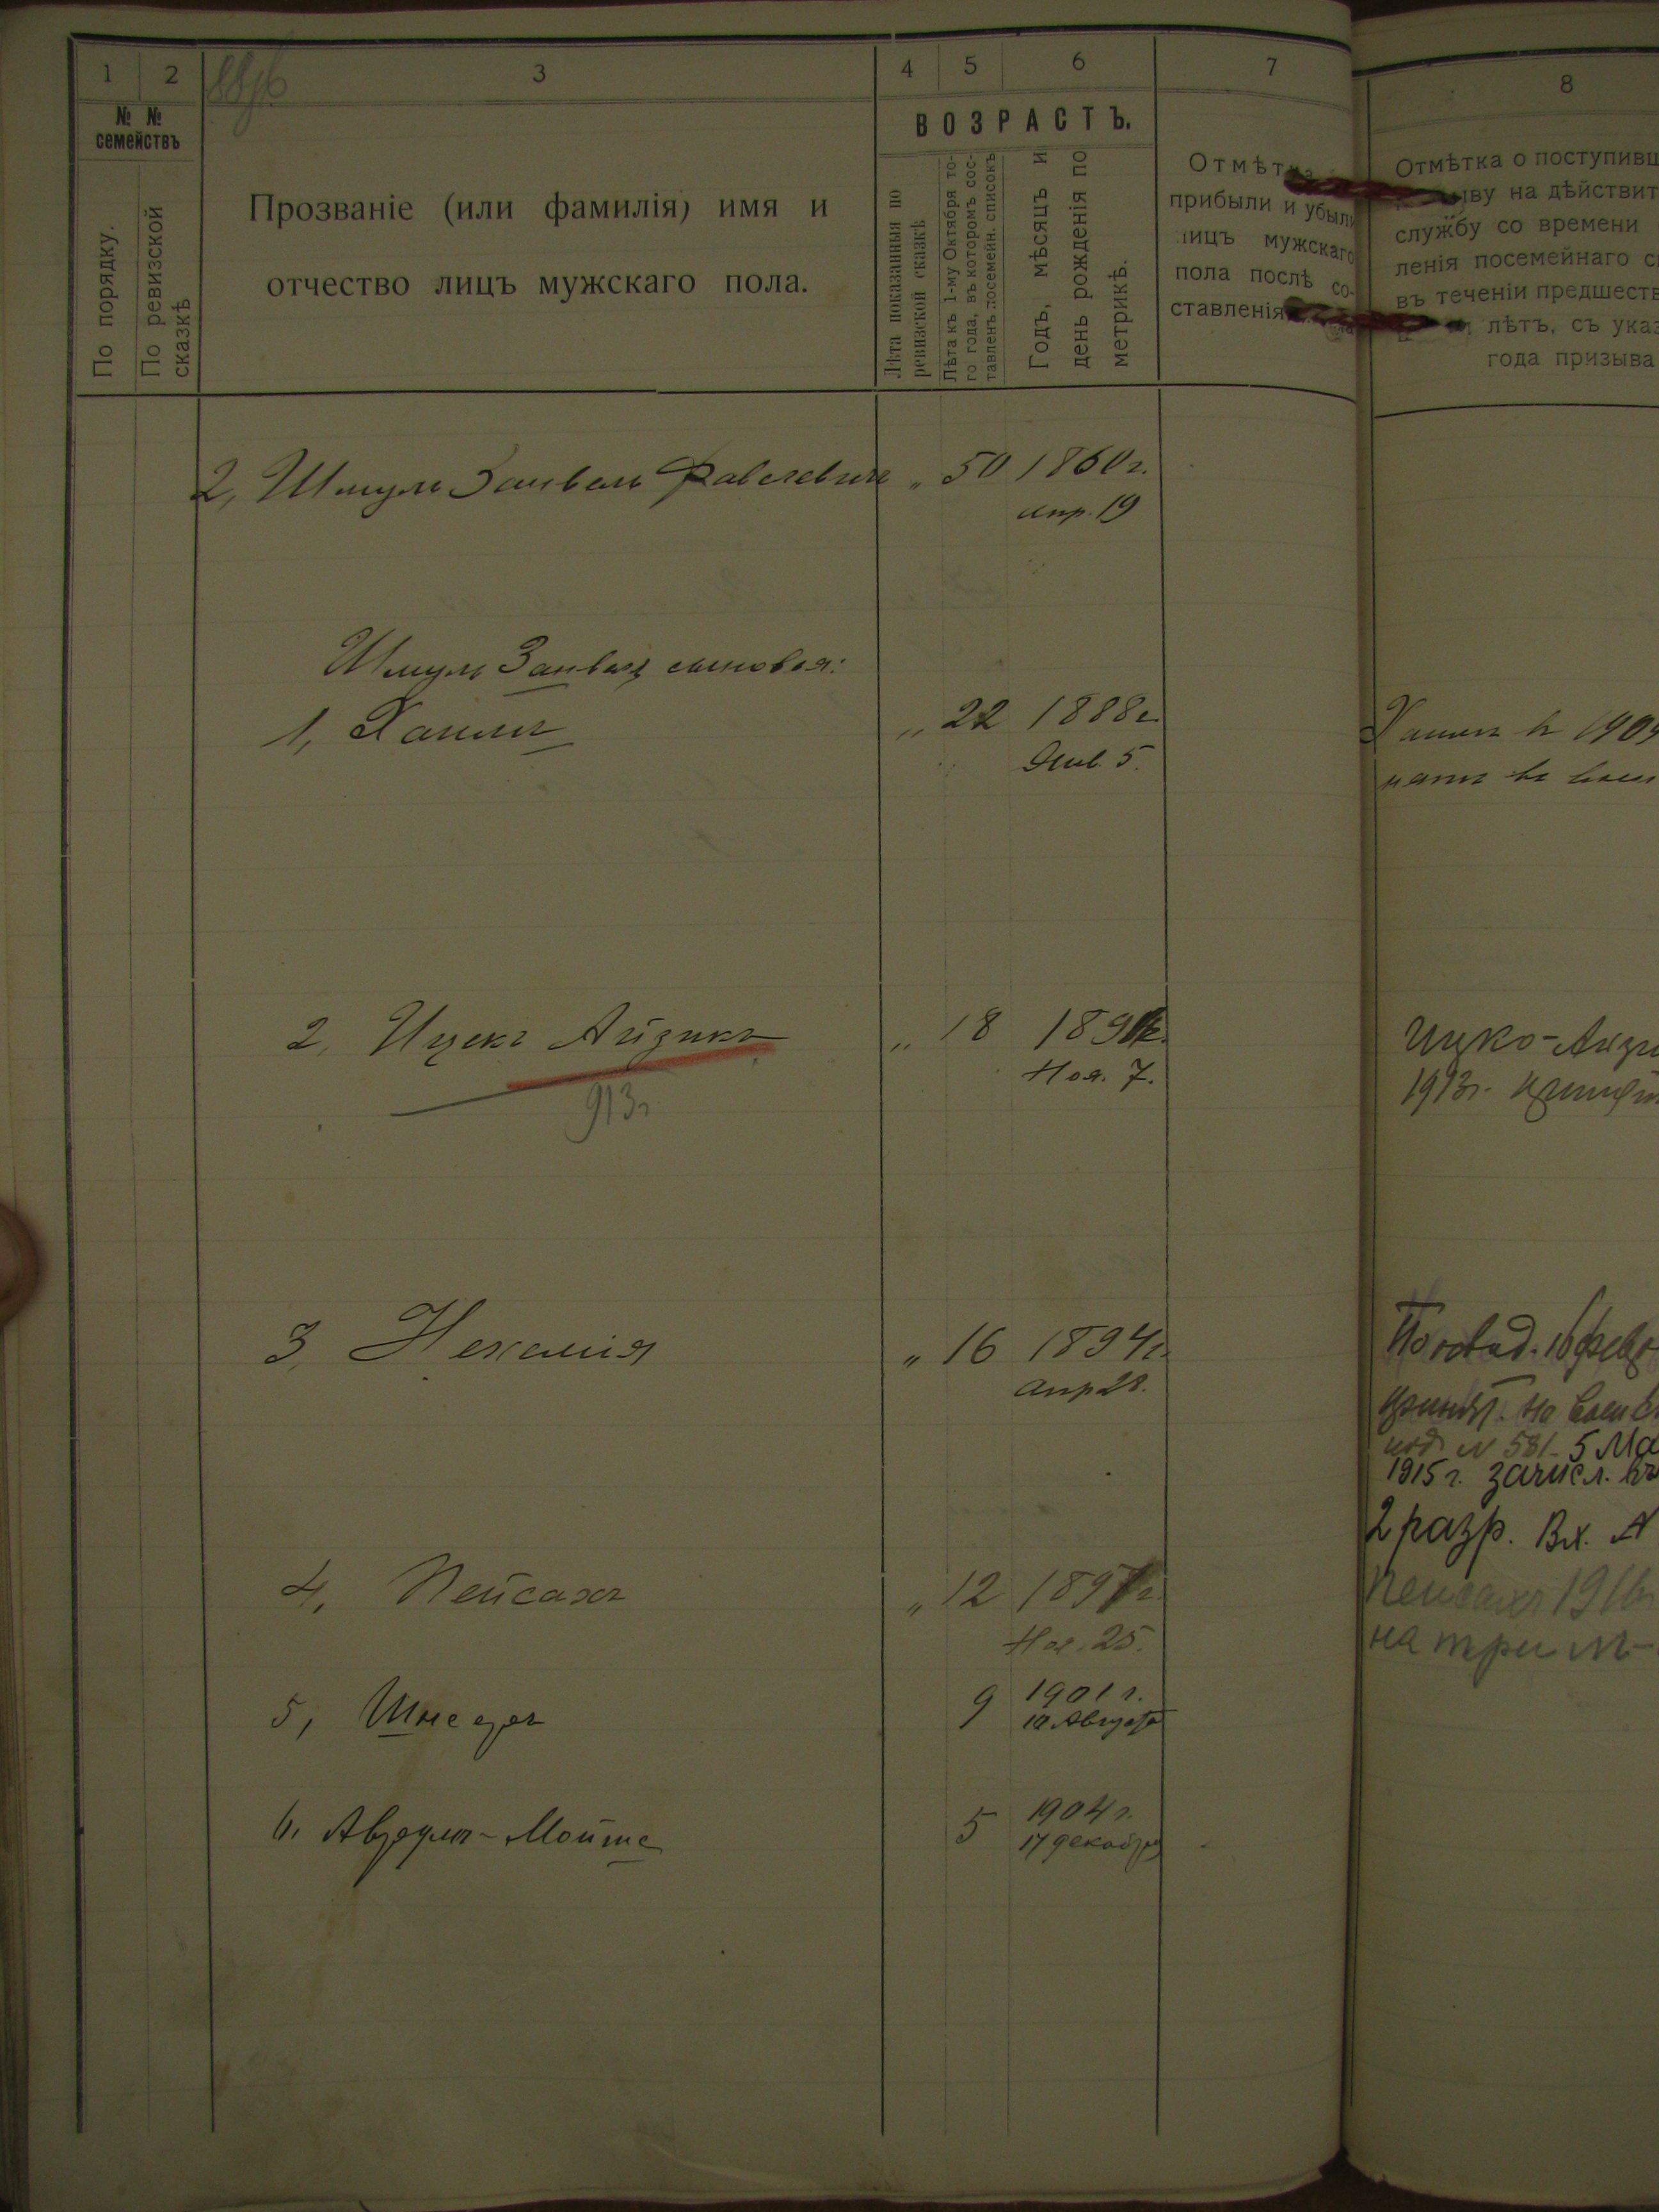 1 2 3 4 5 6 7 8
№ № семействъ
По порядку.
По ревизской сказкѣ
Прозваніе (или фамилія) имя и
отчество лицъ мужскаго пола.
ВОЗРАСТЪ.
Лѣта показанныя по
ревизской сказкѣ
Лѣта къ 1-му Октября то-
го года, въ которомъ сос-
тавленъ посемейн. списокъ
Годъ, мѣсяцъ и
день рожденія по
метрикѣ.
прибыли и убыли
лицъ мужскаго
пола послѣ со-
ставленія
Отмѣтка о поступивш
ыву на дѣйствит
службу со времени
ленія посемейнаго с
въ теченіи предшеств
лѣтъ, съ указ
года призыва
2, Шмуль Занвель Файвелевичъ " 50 1860 г.
апр. 19
Шмуль Занвеля сыновья:
1, Хаимъ " 22 1888 г.
Янв. 5.
Хаимъ въ 1909
2, Ицекъ Айзикъ " 18
Ноя. 7.
913 г
Ицко-Айзи
1913 г.
3, Нехамія " 16 1894 г.
апр 28.
№ 581. 5 Ма
1915 г. зачисл. въ
2 разр. Вх. №
4, Пейсахъ " 12 1897 г.
Ноя. 25.
Пейсахъ 1916
на три м-
5, Шнееръ 9 1901 г.
10 Августа
6, Авраамъ-Мойше 5 1904 г.
17 декабря